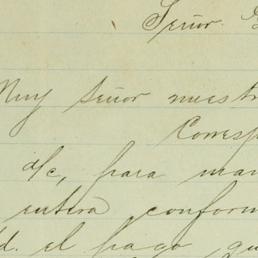 Señor
Muy Señor nuestr
Corresp
d/c, para man
entera conform
d. el pago qu